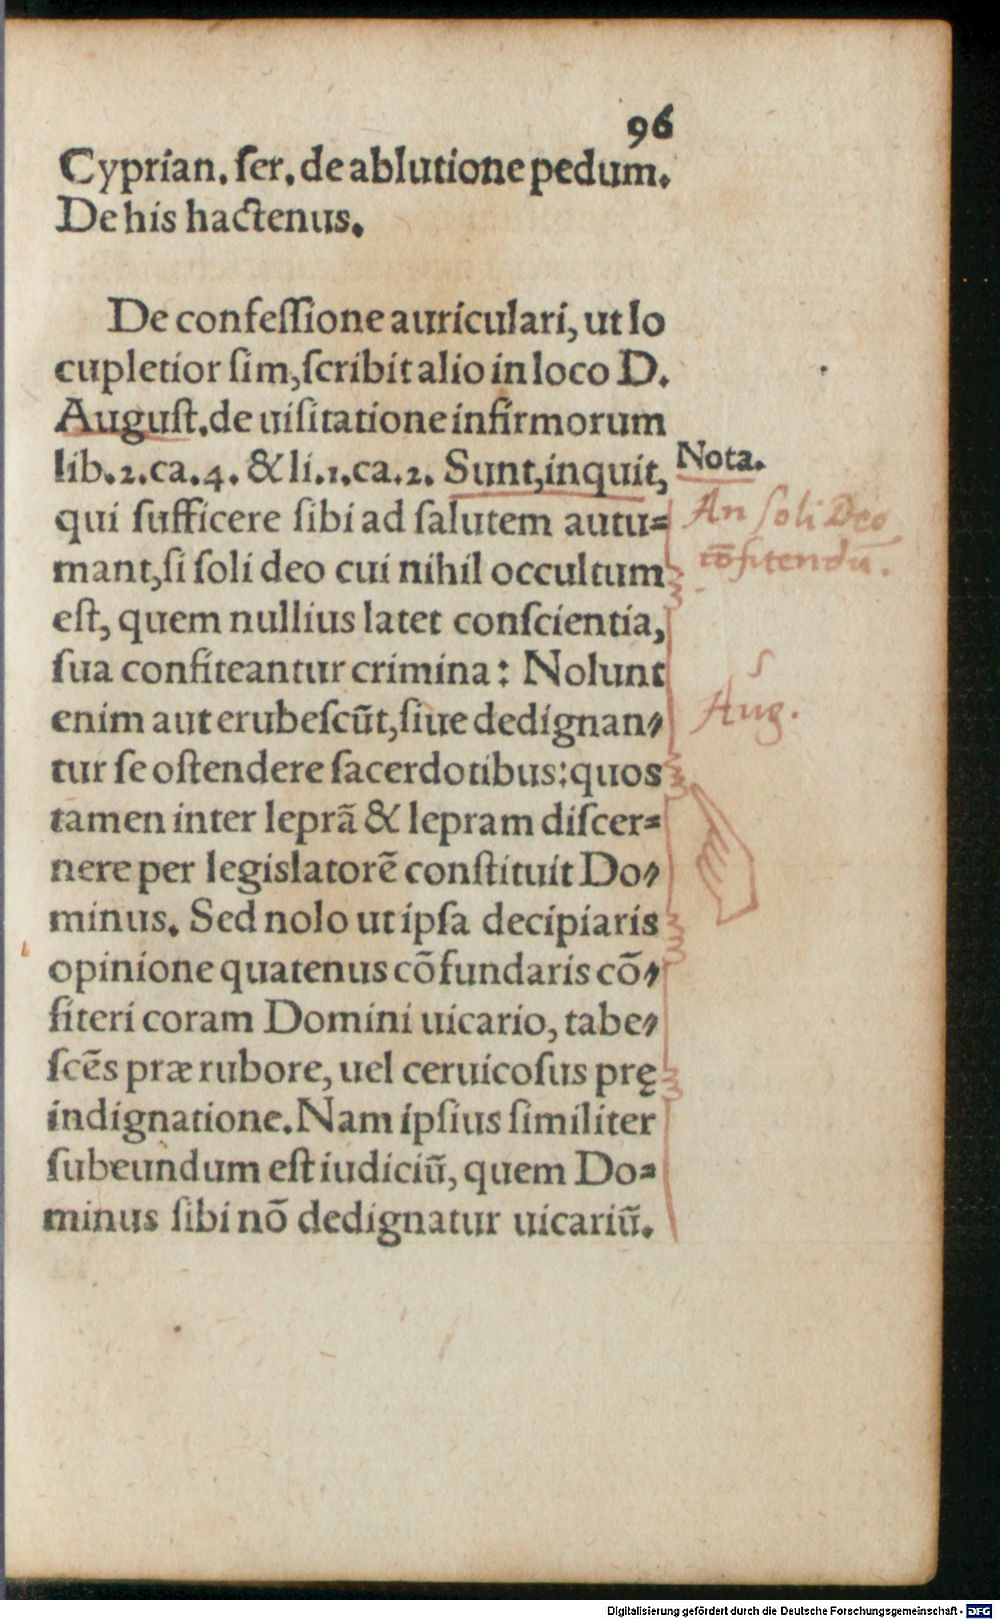 96
Cyprian. ſer. de ablutione pedum.
De his hactenus.
De confeſſione auriculari, ut lo
cupletior ſim, ſcribit alio in loco D.
Auguſt. de uiſitatione infirmorum
lib. 2. ca. 4. & li. 1. ca. 2. Sunt, inquit,
Nota.
qui ſufficere ſibi ad ſalutem autu-
An ſoli Deo
mant, ſi ſoli deo cui nihil occultum
cōfitendū.
eſt, quem nullius latet conſcientia,
ſua confiteantur crimina: Nolunt
enim aut erubeſcūt, ſiue dedignan-
S
Aug.
tur ſe oſtendere ſacerdotibus: quos
tamen inter leprā & lepram diſcer-
nere per legislatorē conſtituit Do-
minus. Sed nolo ut ipſa decipiaris
opinione quatenus cōfundaris cō-
fiteri coram Domini uicario, tabe-
ſcēs præ rubore, uel ceruicoſus prę
indignatione. Nam ipſius ſimiliter
ſubeundum eſt iudiciū, quem Do-
minus ſibi nō dedignatur uicariū.
Digitalisierung gefördert durch die Deutsche Forschungsgemeinschaft - DFG